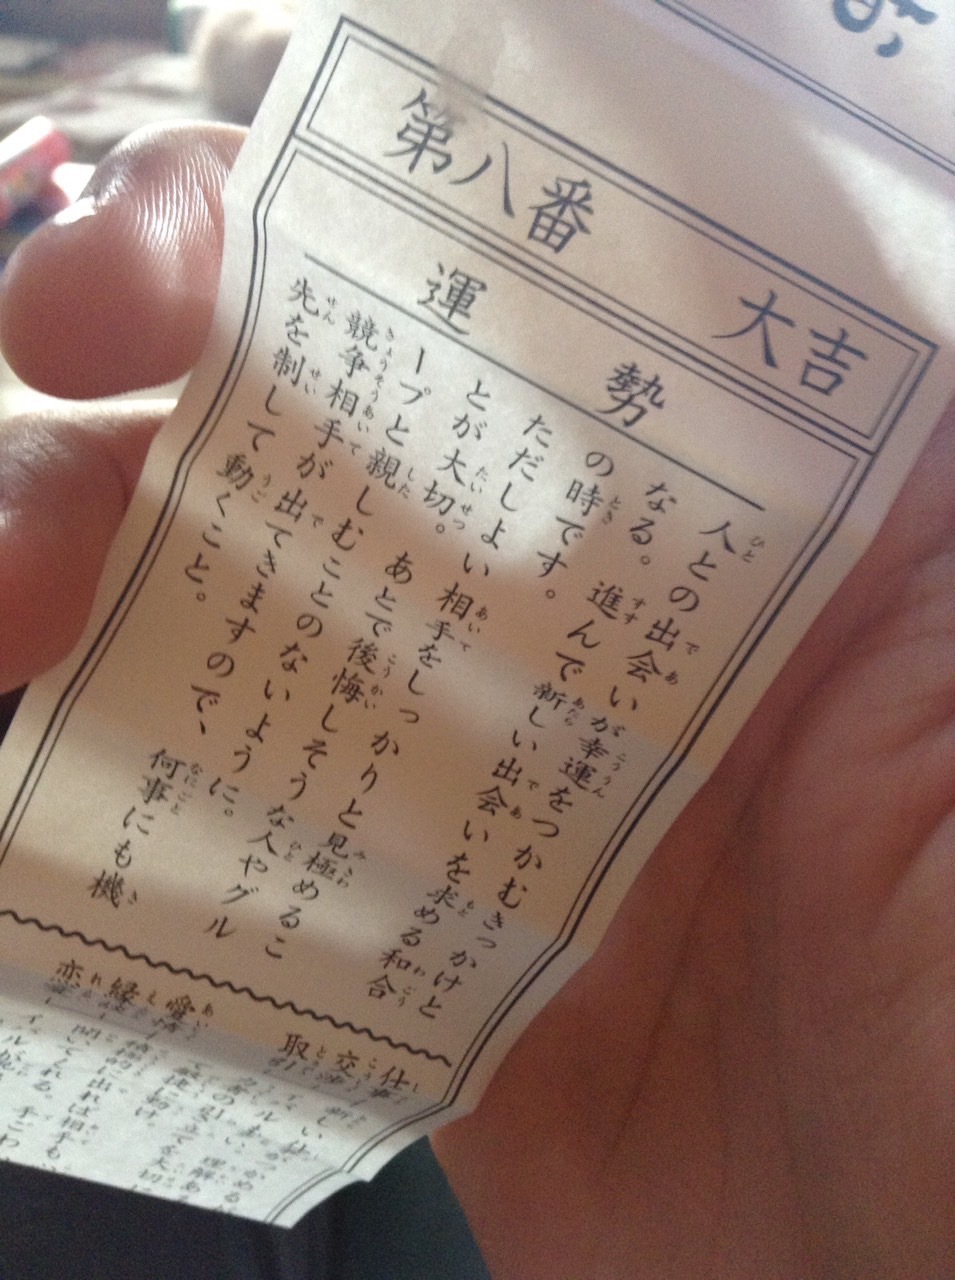 第八番 大吉
運勢
人との出会いが幸運をつかむきっかけと
なる。進んで新しい出会いを求める和合
の時です。
ただしよい相手をしっかりと見極めるこ
とが大切。あとで後悔しそうな人やグル
ープと親しむことのないように。
競争相手が出てきますので、何事にも機
先を制して動くこと。
仕事
交渉
取引
愛情
縁談
恋愛